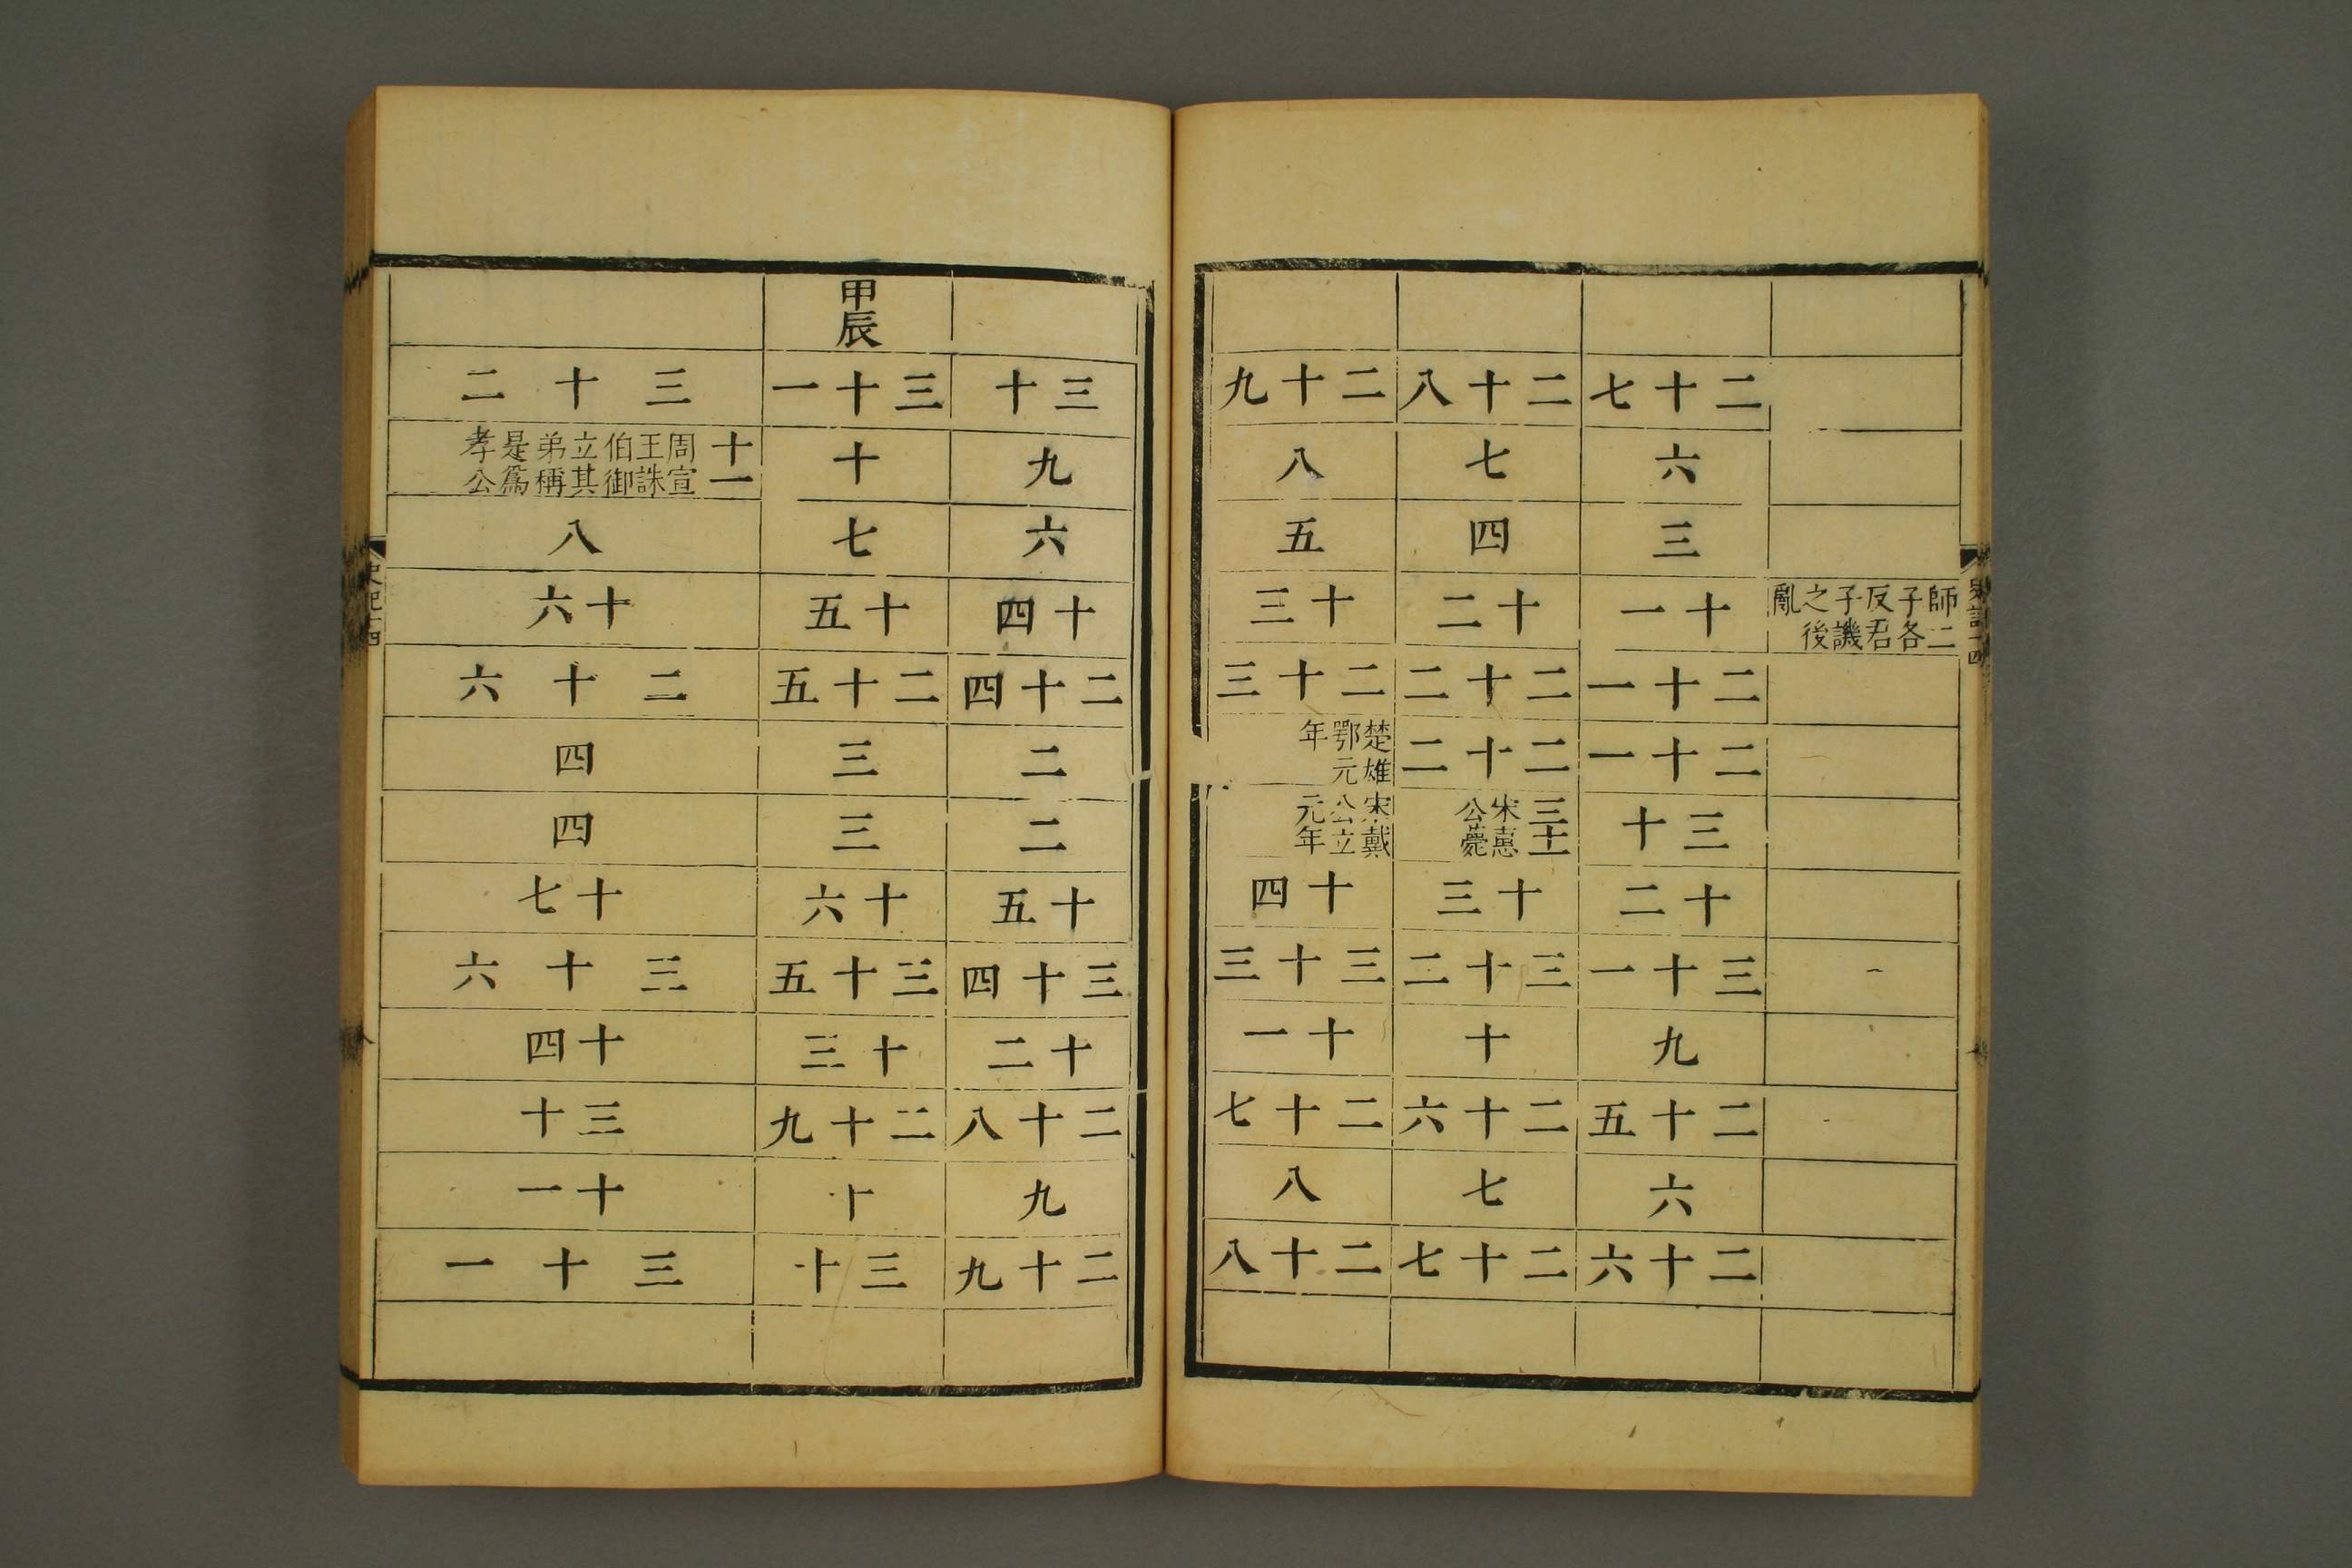 史記十四
師二子各反君子譏之後亂
二十七
六
三
十一
二十一
二十一
三十
十二
三十一
九
二十五
六
二十六
二十八
七
四
十二
二十二
二十二
三十一宋惠公薨
十三
三十二
十
二十六
七
二十七
二十九
八
五
十三
二十三
楚雄鄂元年
宋戴公立元年
十四
三十三
十一
二十七
八
二十八
三十
九
六
十四
二十四
二
二
十五
三十四
十二
二十八
九
二十九
甲辰
三十一
十
七
十五
二十五
三
三
十六
三十五
十三
二十九
十
三十
三十二
十一周宣王誅伯御立其弟稱是爲孝公
八
十六
二十六
四
四
十七
三十六
十四
三十
十一
三十一